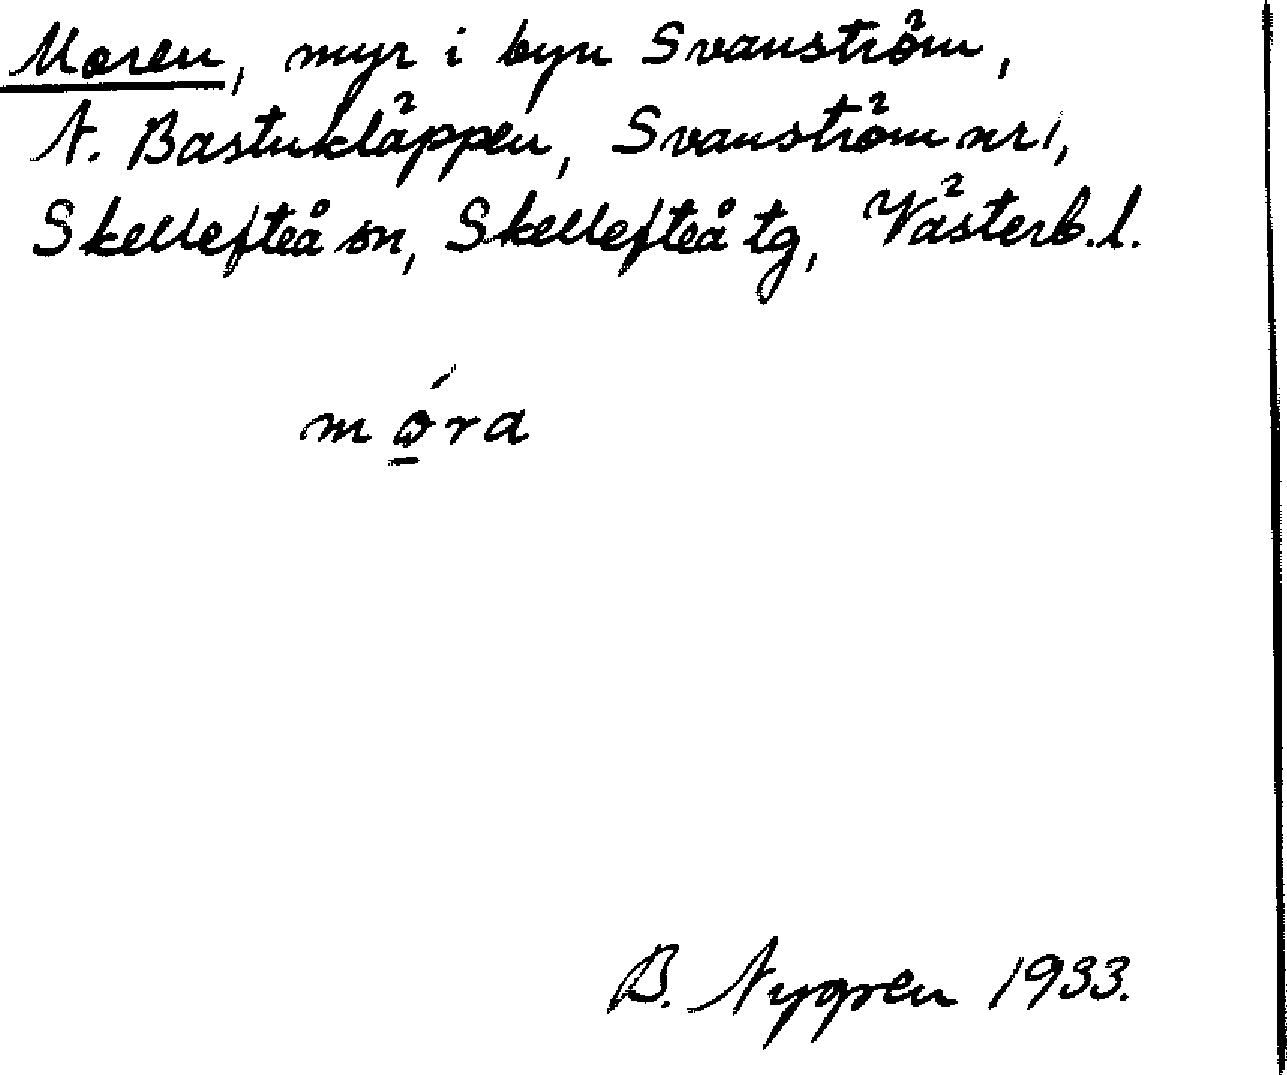 Moren, myr i byn Svanström,
N. Bastukläppen, Svanström nr 1,
Skellefteå sn, Skellefteå tg, Västerb. l.
mǫ́ra
B. Nygren 1933.